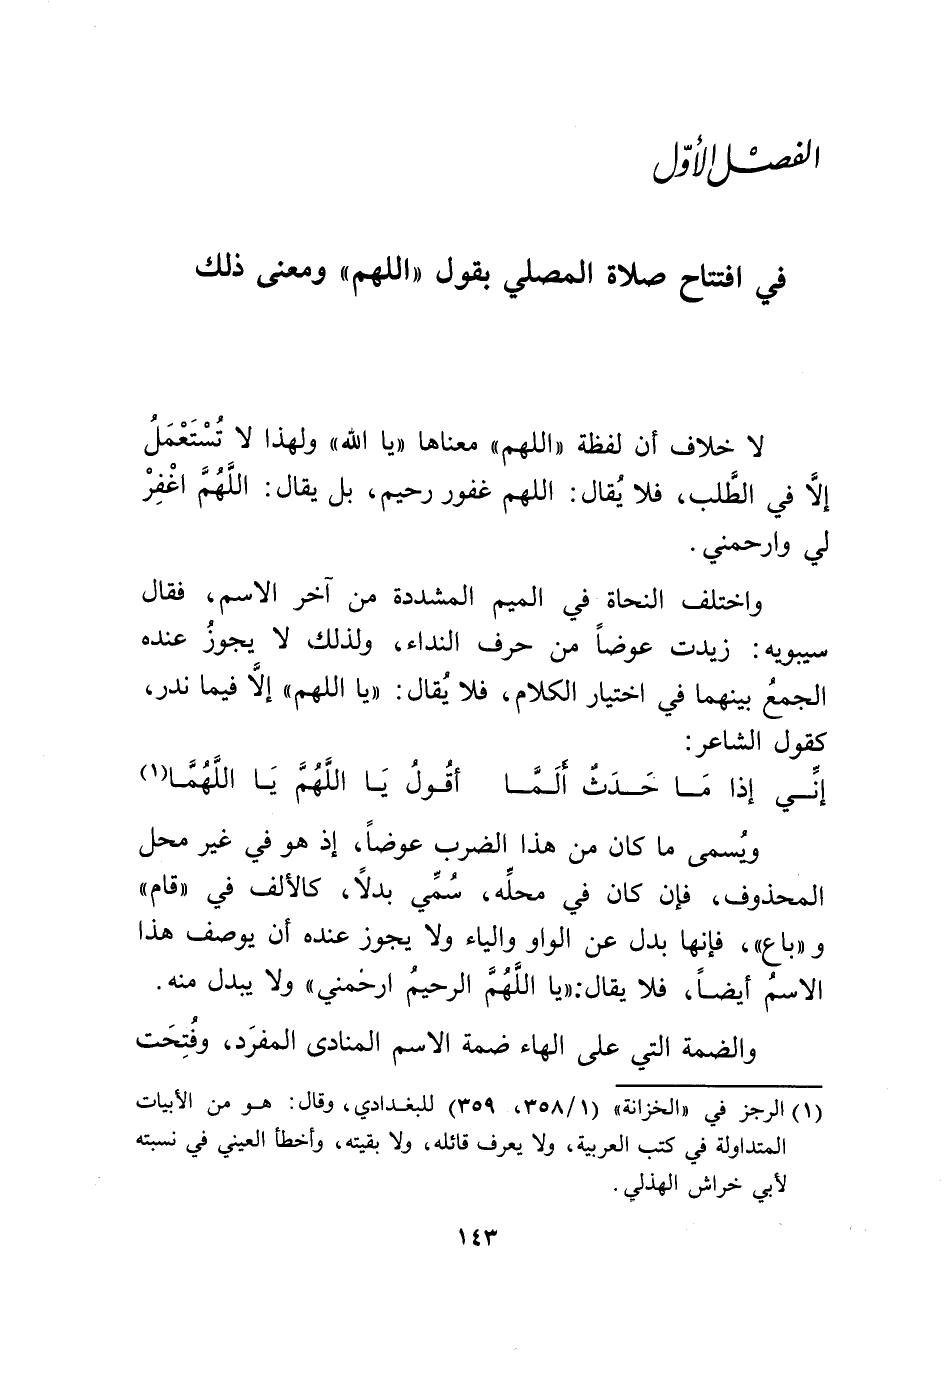 الفصل الأوّل
في افتتاح صلاة المصلي بقول «اللهم» ومعنى ذلك
لا خلاف أن لفظة «اللهم» معناها «يا الله» ولهذا لا تُسْتَعْمَلُ
إلَّا في الطَّلب، فلا يُقال: اللهم غفور رحيم، بل يقال: اللَّهُمَّ اغْفِرْ
لي وارحمني.
واختلف النحاة في الميم المشددة من آخر الاسم، فقال
سيبويه: زيدت عوضاً من حرف النداء، ولذلك لا يجوزُ عنده
الجمعُ بينهما في اختيار الكلام، فلا يُقال: «يا اللهم» إلَّا فيما ندر،
كقول الشاعر:
إنِّـي إذا مَـا حَـدَثٌ أَلَـمَّـا أقُـولُ يَـا اللَّهُمَّ يَـا اللَّهُمَّـا(١)
ويُسمى ما كان من هذا الضرب عوضاً، إذ هو في غير محل
المحذوف، فإن كان في محلِّه، سُمِّي بدلًا، كالألف في «قام»
و «باع»، فإنها بدل عن الواو والياء ولا يجوز عنده أن يوصف هذا
الاسمُ أيضـاً، فلا يقال:«يا اللَّهُمَّ الرحيمُ ارحْمني» ولا يبدل منه.
والضمة التي على الهاء ضمة الاسم المنادى المفرَد، وفُتِحَت
(١) الرجز في «الخزانة» (٣٥٨/١، ٣٥٩) للبغـدادي، وقال: هـو من الأبيات
المتداولة في كتب العربية، ولا يعرف قائله، ولا بقيته، وأخطأ العيني في نسبته
لأبي خراش الهذلي.
١٤٣